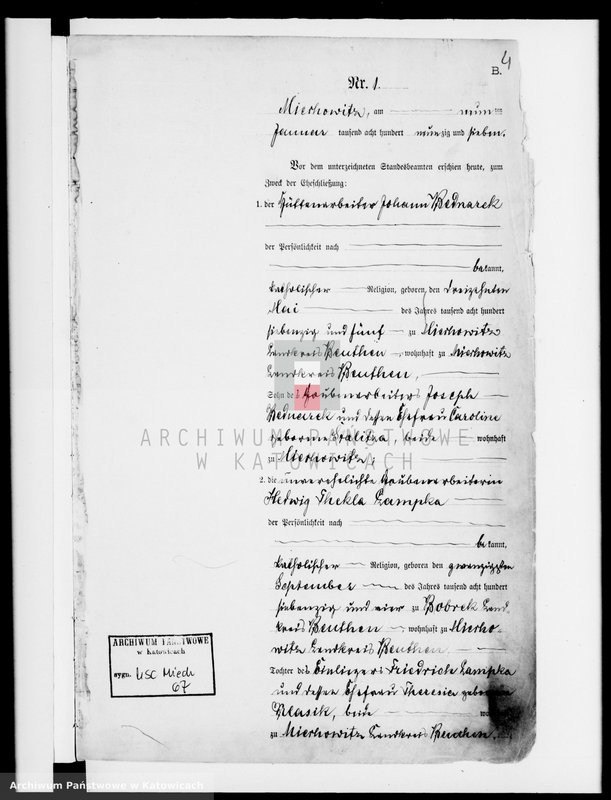 4
B.
Nr. 1.
Miechowitz, am neun ten
Januar tausend acht hundert neunzig und sieben.
Vor dem unterzeichneten Standesbeamten erschien heute, zum
Zweck der Eheschließung:
1. der Hüttenarbeiter Johann Bednarek
der Persönlichkeit nach
be kannt,
katholischer Religion, geboren den dreizehnten
Mai des Jahres tausend acht hundert
siebenzig und fünf zu Miechowitz
Landkreis Beuthen, wohnhaft zu Miechowitz
Landkreis Beuthen,
Sohn des Grubenarbeiters Joseph
Bednarek und dessen Ehefrau Caroline
geborene, beide wohnhaft
zu Miechowitz,
2. die unverehelichte Grubenarbeiterin
Hedwig Thekla Lampka
der Persönlichkeit nach
be kannt,
katholischer Religion, geboren den zwanzigsten
September des Jahres tausend acht hundert
siebenzig und vier zu Bobrek Land-
kreis Beuthen, wohnhaft zu Miecho-
witz Landkreis Beuthen,
Tochter des Einliegers Friedrich Lampka
und dessen Ehefrau Theresia geborenen
Klasik, beide
zu Miechowitz Landkreis Beuthen.
ARCHIWUM PAŃSTWOWE
w Katowicach
sygn. USC Miech
67
ARCHIWUM PAŃSTWOWE
W KATOWICACH
Archiwum Państwowe w Katowicach